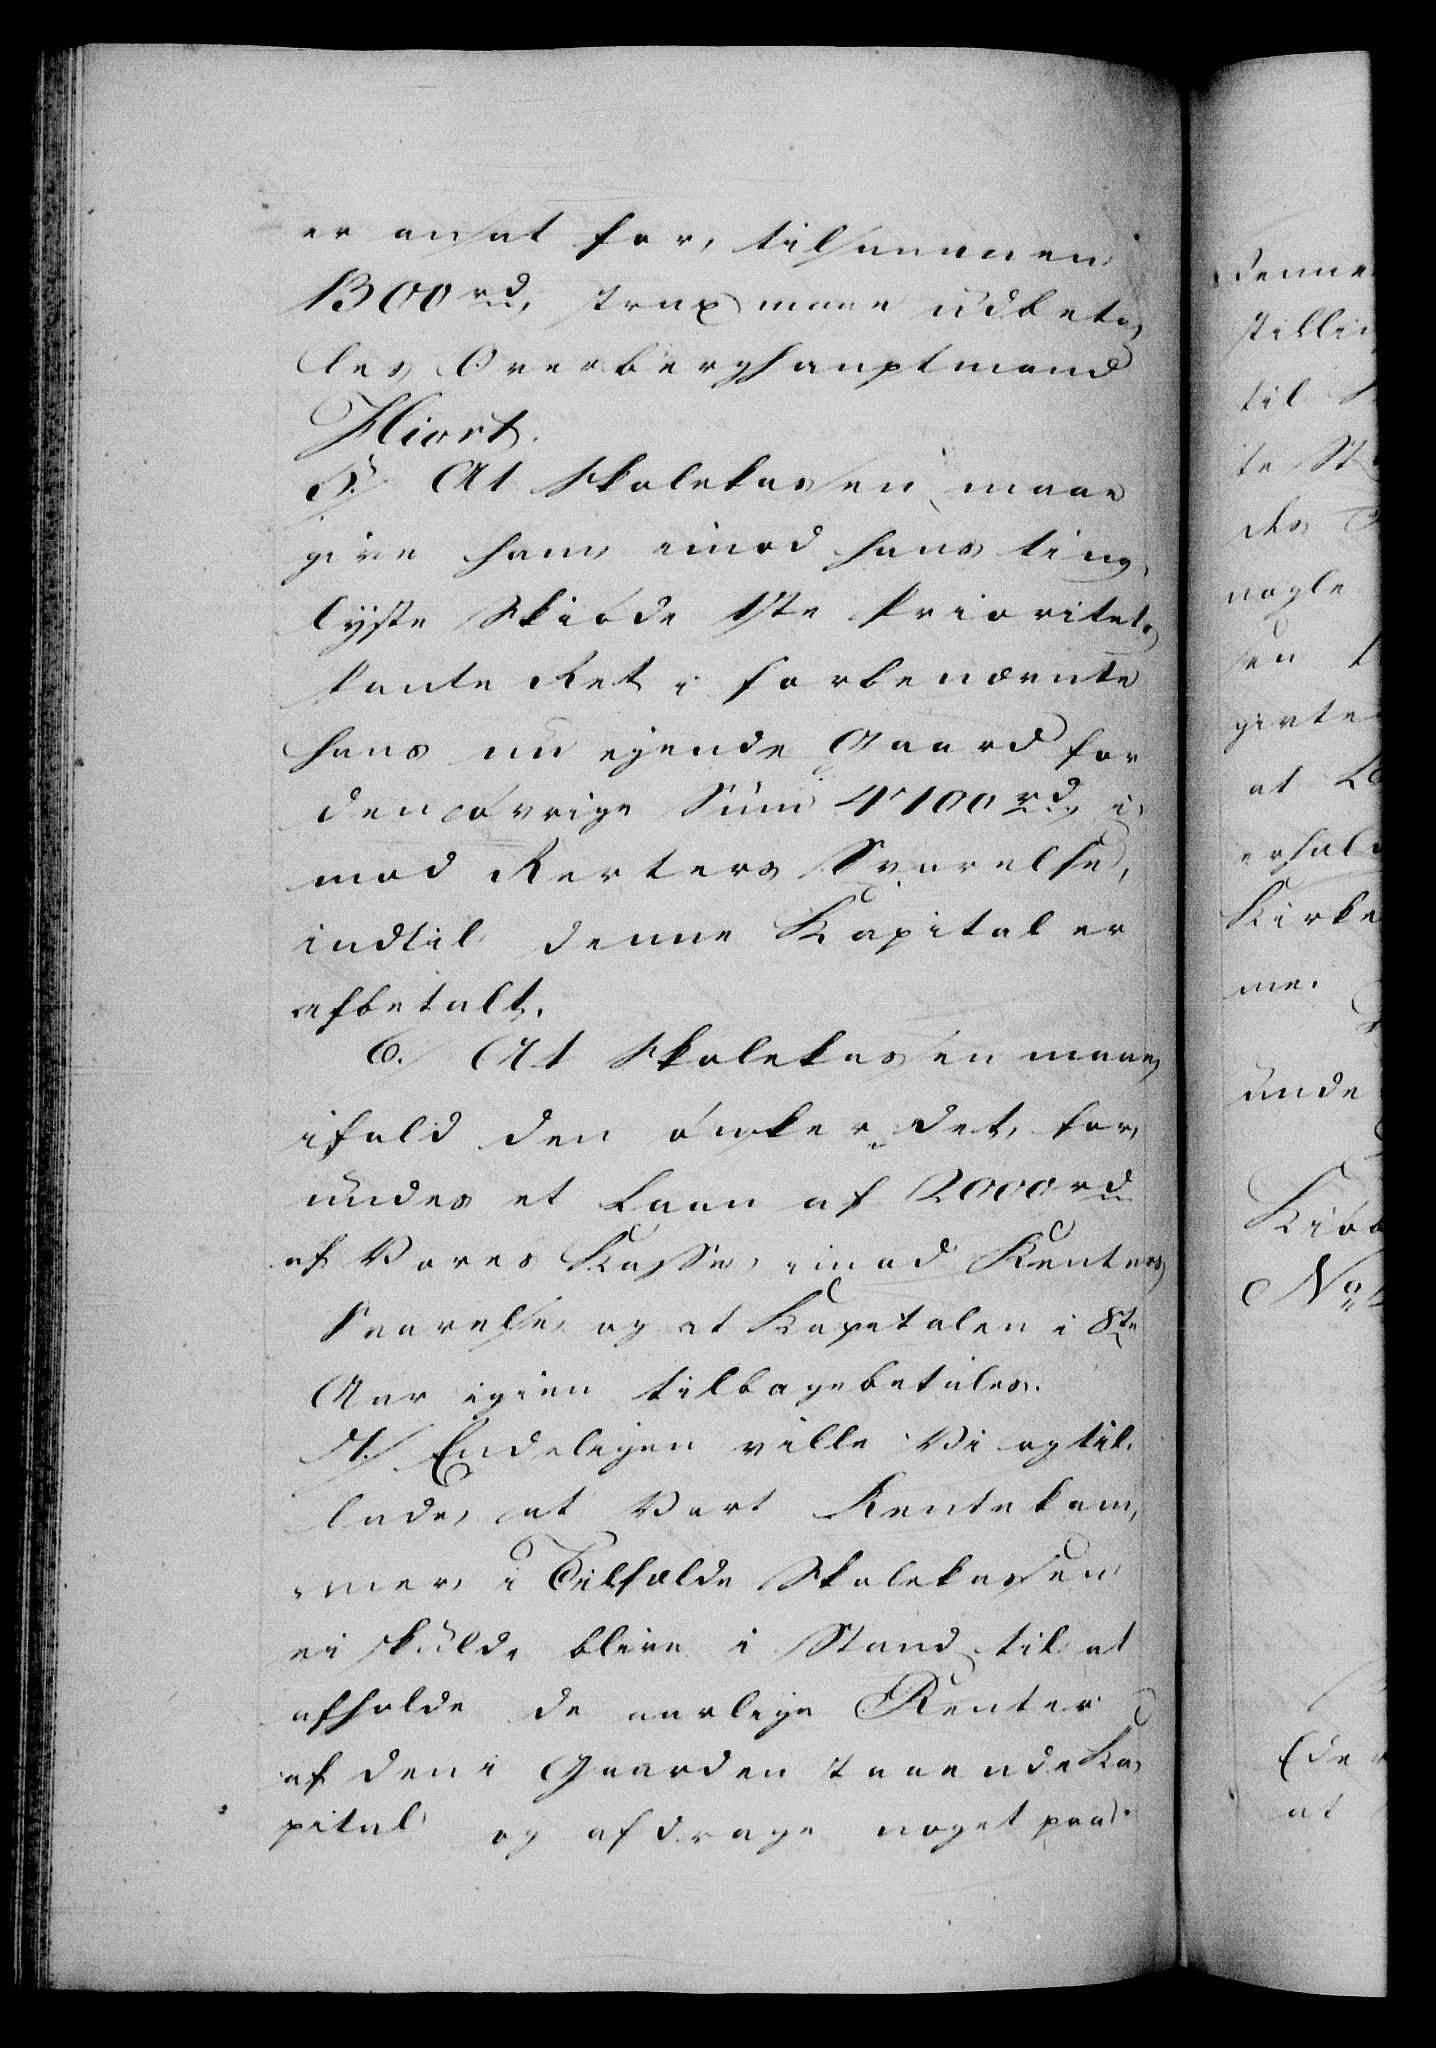 er ansat for, tilsammen
1300 rd, strax maae udbeta,
les Overberghauptmand
Hiort.
5./ At Skolekassen maae
give ham imod hans ting,
lyste Skiøde 1ste Prioritet,
pante Ret i forbenævnte
hans nu eiende Gaard for
den øvrige Sum 4700 rd, i,
mod Renters Svarelse,
indtil denne Kapital er
afbetalt.
6./ At Skolekassen maae,
ifald den ønsker det, for,
undes et Laan af 2000 rd
af Vores Kasse, imod Renters
Svarelse og at Kapitalen i 8te
Aar igien tilbagebetales.
7./ Endeligen ville Vi og til,
lade, at Vort Rentekam,
mer, i Tilfælde Skolekassen
ei skulde blive i Stand til at
afholde de aarlige Renter
af den i Gaarden staaende Ka,
pital og afdrage noget paa
denne
stilli
til
te St
des
nogle
sen
givte
at
erhol
Kirke
me.
unde
Kiøb
No
Eder
at